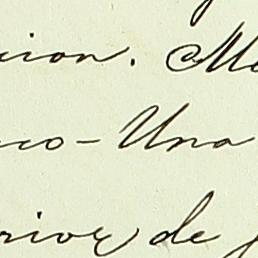 cion. Me
co-Una
rior de